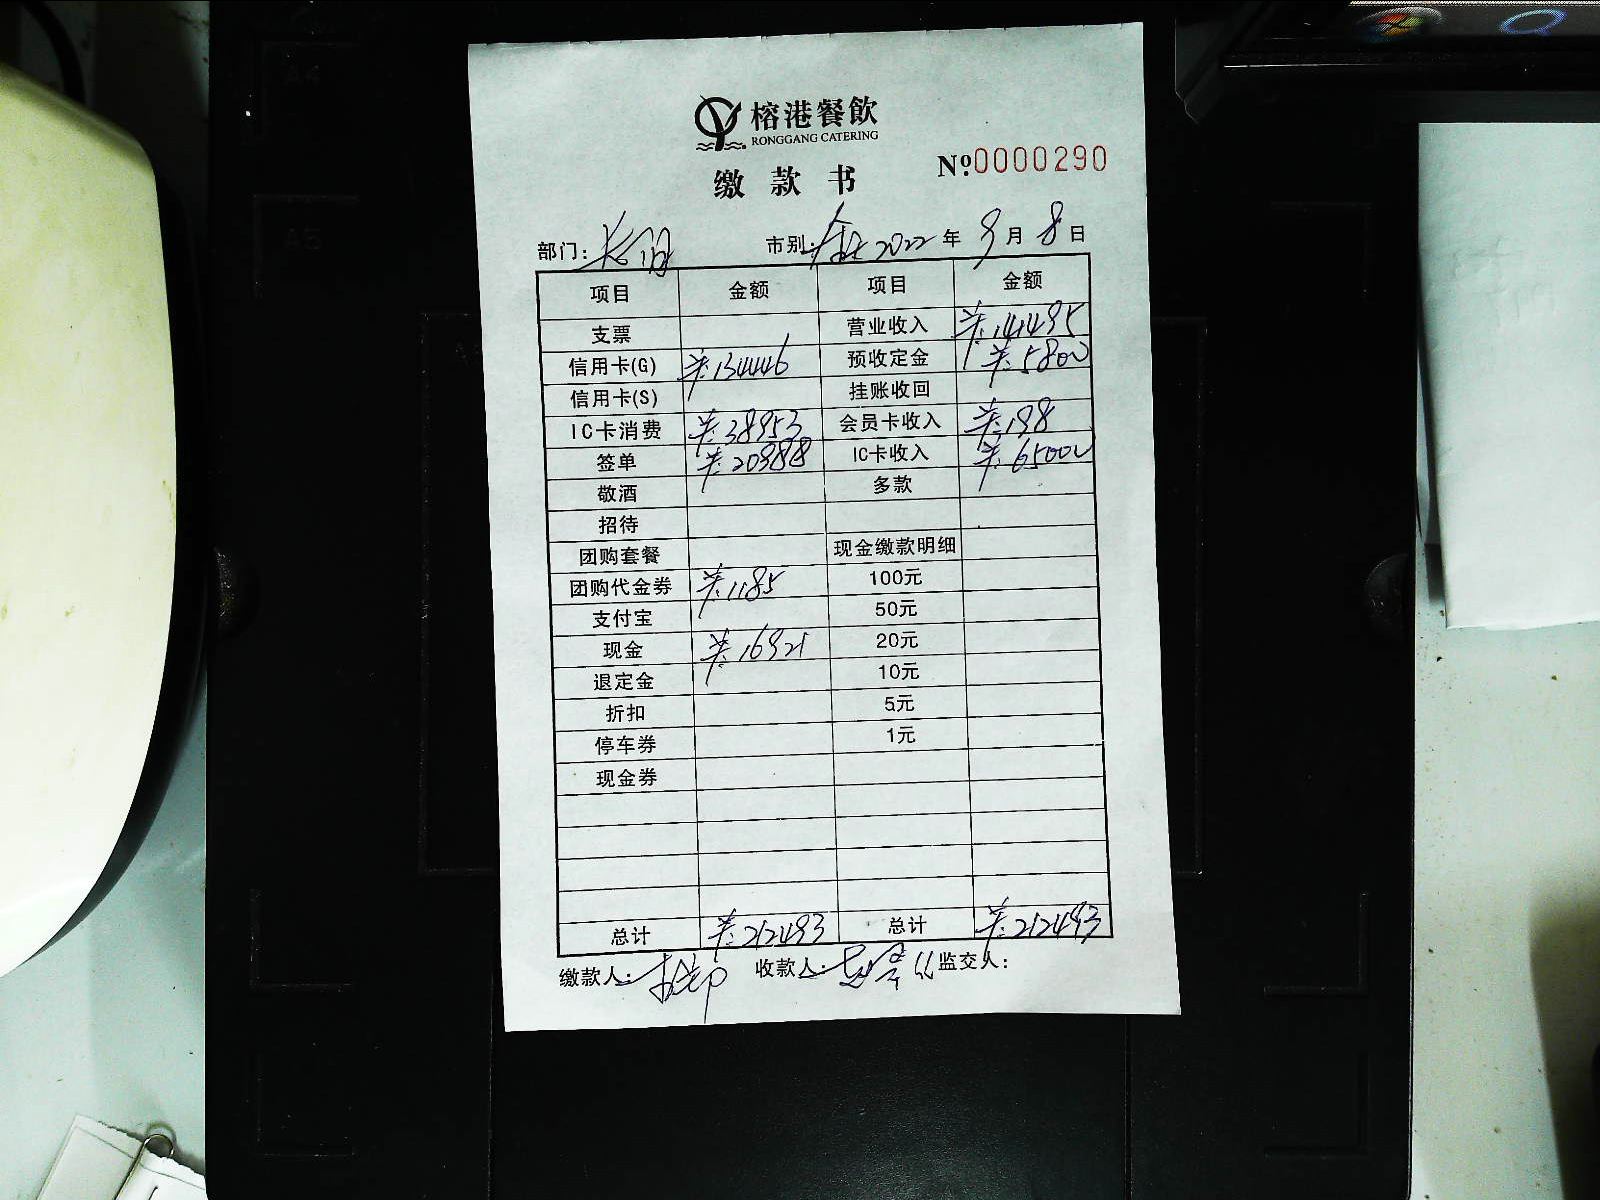 A4
A5
榕港餐飲
RONGGANG CATERING
缴款书
№:0000290
部门: 市别: 2022年9月8日
项目 金额 项目 金额
支票 营业收入 ¥:141495
信用卡(G) ¥:134446 预收定金 ¥:5800
信用卡(S) 挂账收回
IC卡消费 ¥:38953 会员卡收入 ¥:198
签单 ¥:20988 IC卡收入 ¥:65000
敬酒 多款
招待
团购套餐 现金缴款明细
团购代金券 ¥:1185 100元
支付宝 50元
现金 ¥:16921 20元
退定金 10元
折扣 5元
停车券 1元
现金券
总计 ¥:212493 总计 ¥:212493
缴款人: 收款人: 监交人: